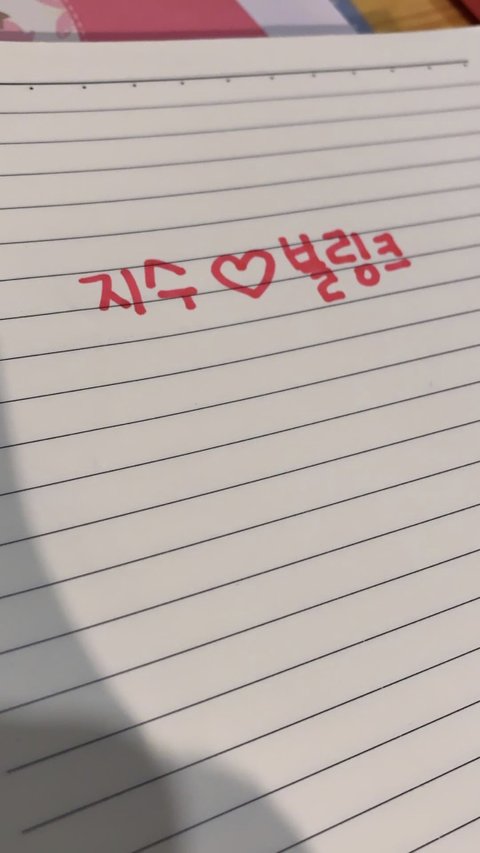 지수♡블링크